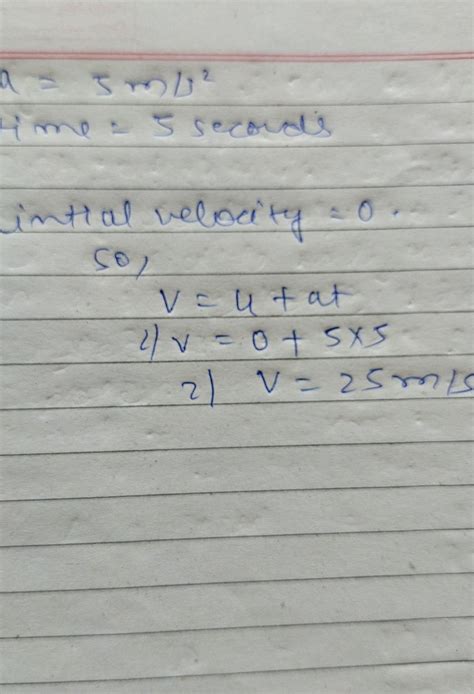 a = 5 m/s²
time = 5 seconds
intial velocity = 0.
so,
v = u + at
2) v = 0 + 5×5
2) v = 25 m/s